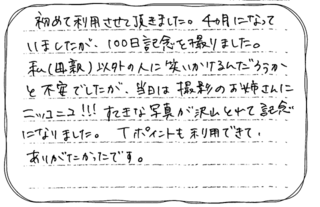 初めて利用させて頂きました。4ヵ月になって
いましたが、100日記念を撮りました。
私(母親)以外の人に笑いかけるんだろうか
と不安でしたが、当日は撮影のお姉さんに
ニッコニコ!!! すてきな写真が沢山とれて記念
になりました。 Tポイントも利用できて、
ありがたかったです。